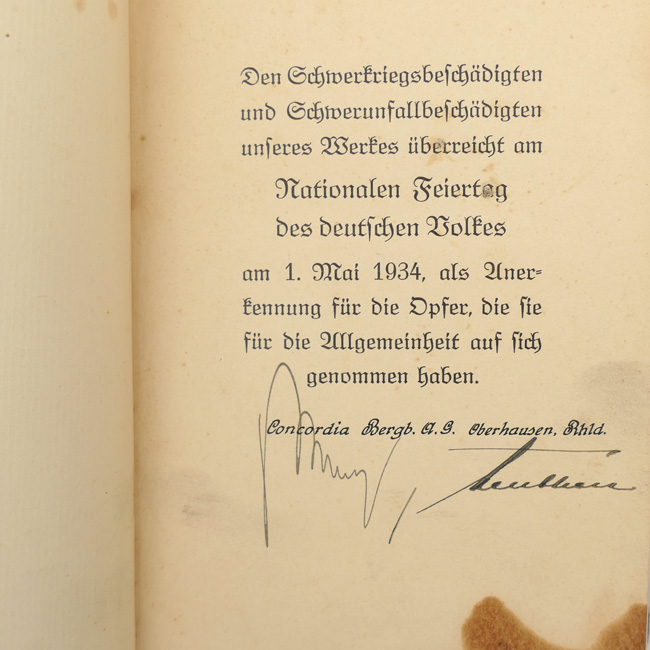 Den Schwerkriegsbeschädigten
und Schwerunfallbeschädigten
unseres Werkes überreicht am
Nationalen Feiertag
des deutschen Volkes
am 1. Mai 1934, als Aner-
kennung für die Opfer, die sie
für die Allgemeinheit auf sich
genommen haben.
Concordia Bergb. A. G. Oberhausen, Rhld.